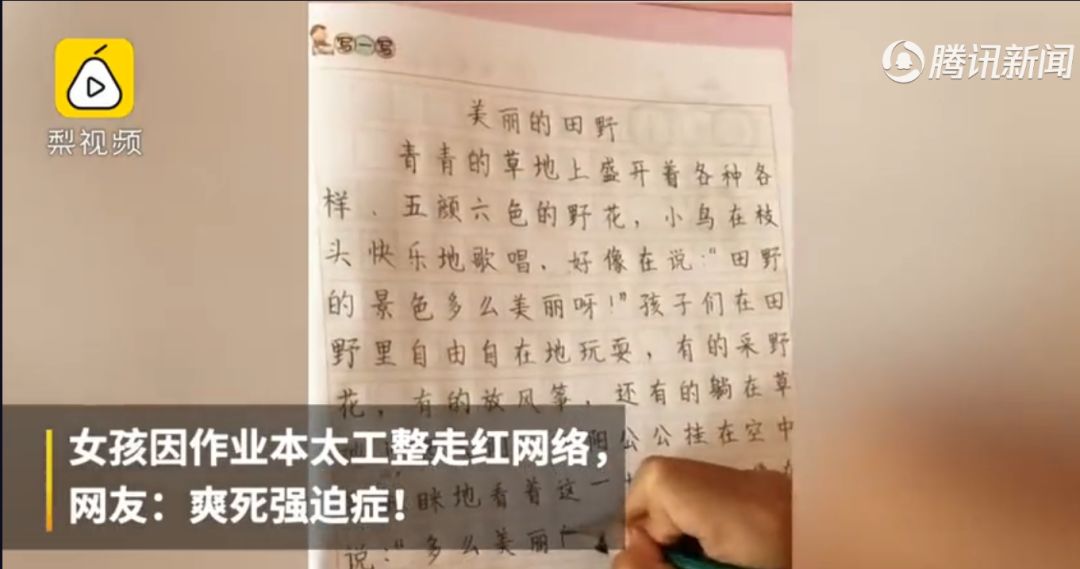 梨视频
腾讯新闻
写一写
美丽的田野
青青的草地上盛开着各种各
样、五颜六色的野花，小鸟在枝
头快乐地歌唱，好像在说：“田野
的景色多么美丽呀！”孩子们在田
野里自由自在地玩耍，有的采野
花，有的放风筝，还有的躺在草
阳公公挂在空中
眯地看着这一
说：“多么美丽
女孩因作业本太工整走红网络，
网友：爽死强迫症！